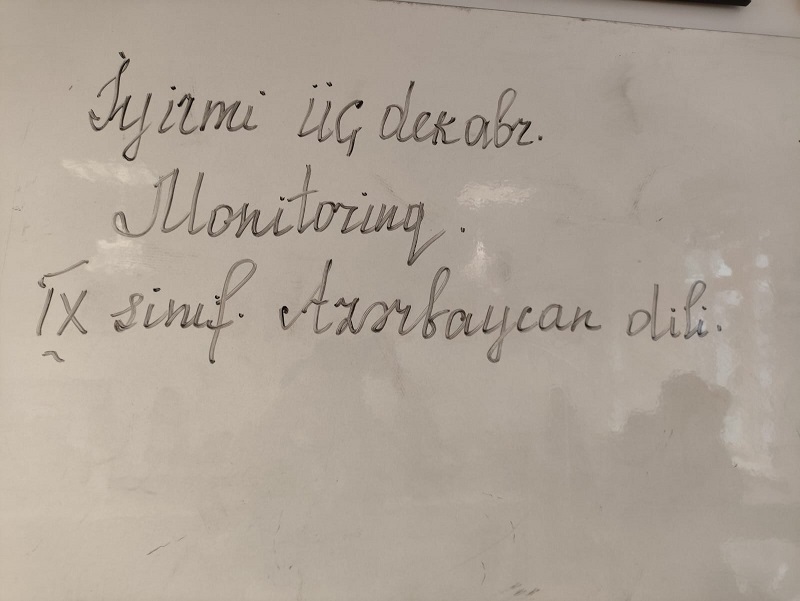 İyirmi üç dekabr.
Monitorinq.
IX sinif. Azərbaycan dili.